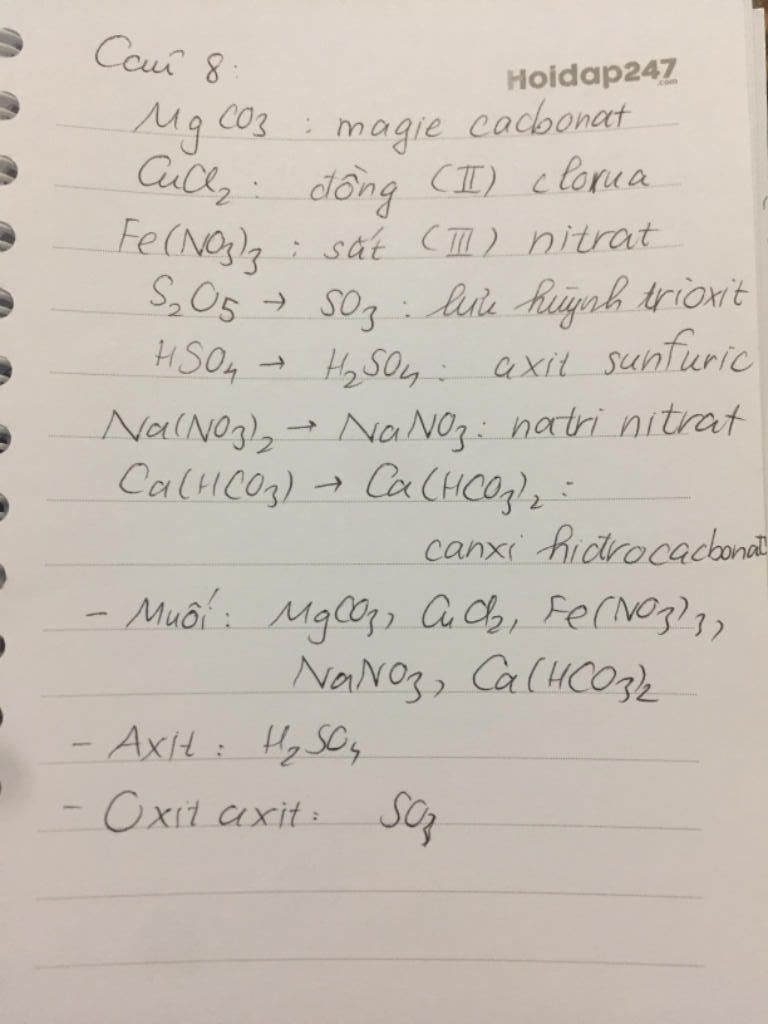 Câu 8:
Hoidap247.com
MgCO3 : magie cacbonat
CuCl2 : đồng (II) clorua
Fe(NO3)3 : sắt (III) nitrat
S2O5 → SO3 : lưu huỳnh trioxit
HSO4 → H2SO4 : axit sunfuric
Na(NO3)2 → NaNO3 : natri nitrat
Ca(HCO3) → Ca(HCO3)2 :
canxi hiđrocacbonat
- Muối : MgCO3, CuCl2, Fe(NO3)3,
NaNO3, Ca(HCO3)2
- Axit : H2SO4
- Oxit axit : SO3